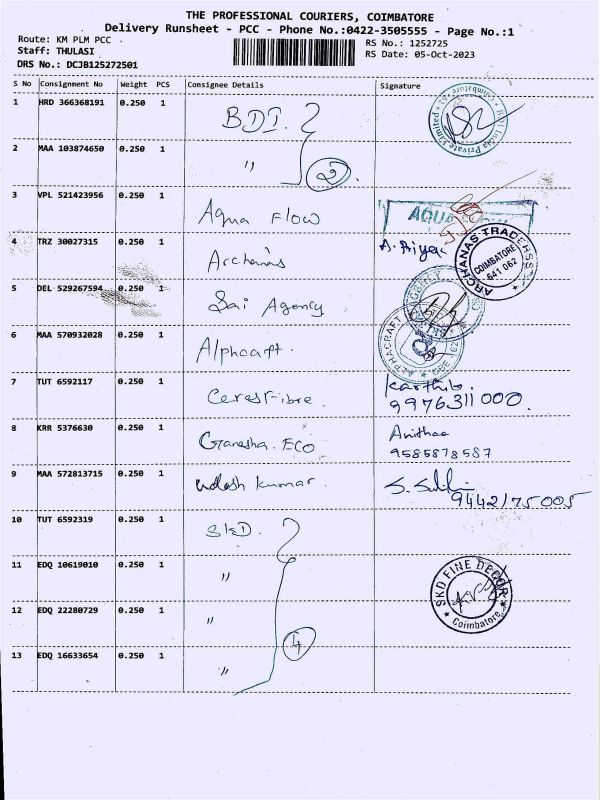 THE PROFESSIONAL COURIERS, COIMBATORE
Delivery Runsheet - PCC - Phone No.:0422-3505555 - Page No.:1
Route: KM PLM PCC
RS No.: 1252725
Staff: THULASI
RS Date: 05-Oct-2023
DRS No.: DCJB125272501
S No Consignment No Weight PCS Consignee Details Signature
1 HRD 366368191 0.250 1 BDI.
2 MAA 103874650 0.250 1 " 2
3 VPL 521423956 0.250 1 Aqua Flow AQUA
4 TRZ 30027315 0.250 1 Archanas A. Priya ARCHANAS TRADERSS COIMBATORE 641 062
5 DEL 529267594 0.250 1 Sai Agency AGENCY
6 MAA 570932028 0.250 1 Alphacraft. ALPHACRAFT
7 TUT 6592117 0.250 1 Cerest-ibre. Karthik. 9976311000.
8 KRR 5376630 0.250 1 Ganesha. ECO Anithaa 9585878587
9 MAA 572813715 0.250 1 Udesh kumar. 9442175005
10 TUT 6592319 0.250 1 SKD.
11 EDQ 10619010 0.250 1 " SKD FINE DECOR Coimbatore
12 EDQ 22280729 0.250 1 "
13 EDQ 16633654 0.250 1 " 4